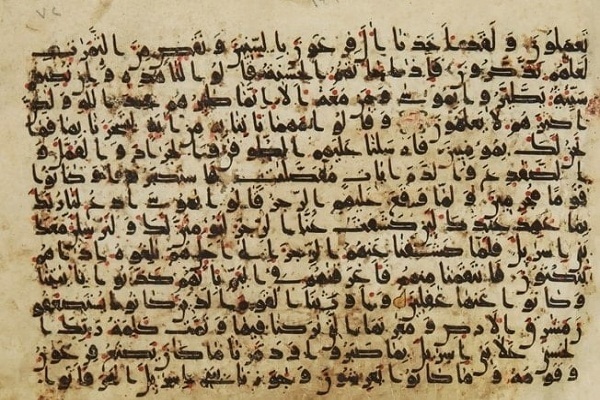 تعملون ولقد اخذنا ال فرعون بالسنين ونقص من الثمرت
لعلهم يذكرون فاذا جاتهم الحسنة قالوا لنا هذه وان تصبهم
سيئة يطيروا بموسى ومن معه الا انما طئرهم عند الله ولكن
اكثرهم لا يعلمون وقالوا مهما تاتنا به من اية لتسحرنا بها فما
نحن لك بمومنين فارسلنا عليهم الطوفن والجراد والقمل و
الضفدع والدم ايات مفصلت فاستكبروا وكانوا
قوما مجرمين ولما وقع عليهم الرجز قالوا يموسى ادع لنا ربك
بما عهد عندك لئن كشفت عنا الرجز لنومنن لك ولنرسلن معك
بني اسريل فلما كشفنا عنهم الرجز الى اجل هم بلغوه اذا هم
ينكثون فانتقمنا منهم فاغرقنهم في اليم بانهم كذبوا باياتنا
وكانوا عنها غفلين واورثنا القوم الذين كانوا يستضعفو
ن مشرق الارض ومغربها التي بركنا فيها وتمت كلمة ربك ا
لحسنى على بني اسريل بما صبروا ودمرنا ما كان يصنع فرعون
وقومه وما كانوا يعرشون وجوزنا ببني اسريل البحر فاتوا